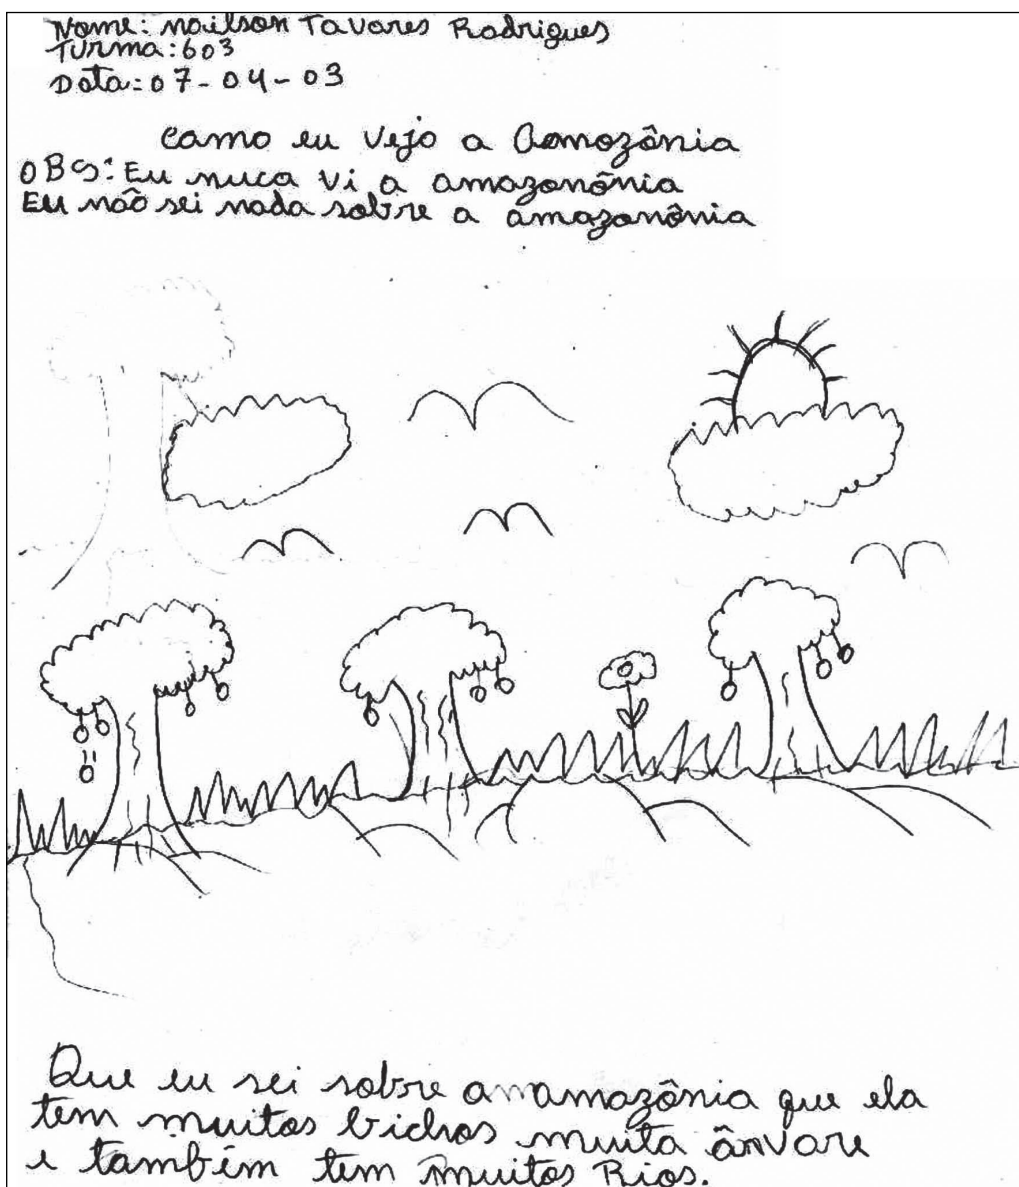 Nome: nailson Tavares Rodrigues
Turma: 603
Data: 07-04-03
Como eu vejo a Aomozônia
OBS: Eu nuca vi a amazonônia
Eu não sei nada sobre a amazonônia
Que eu sei sobre amamazônia que ela
tem muitos bichos muita ânvare
e também tem muitos Rios.